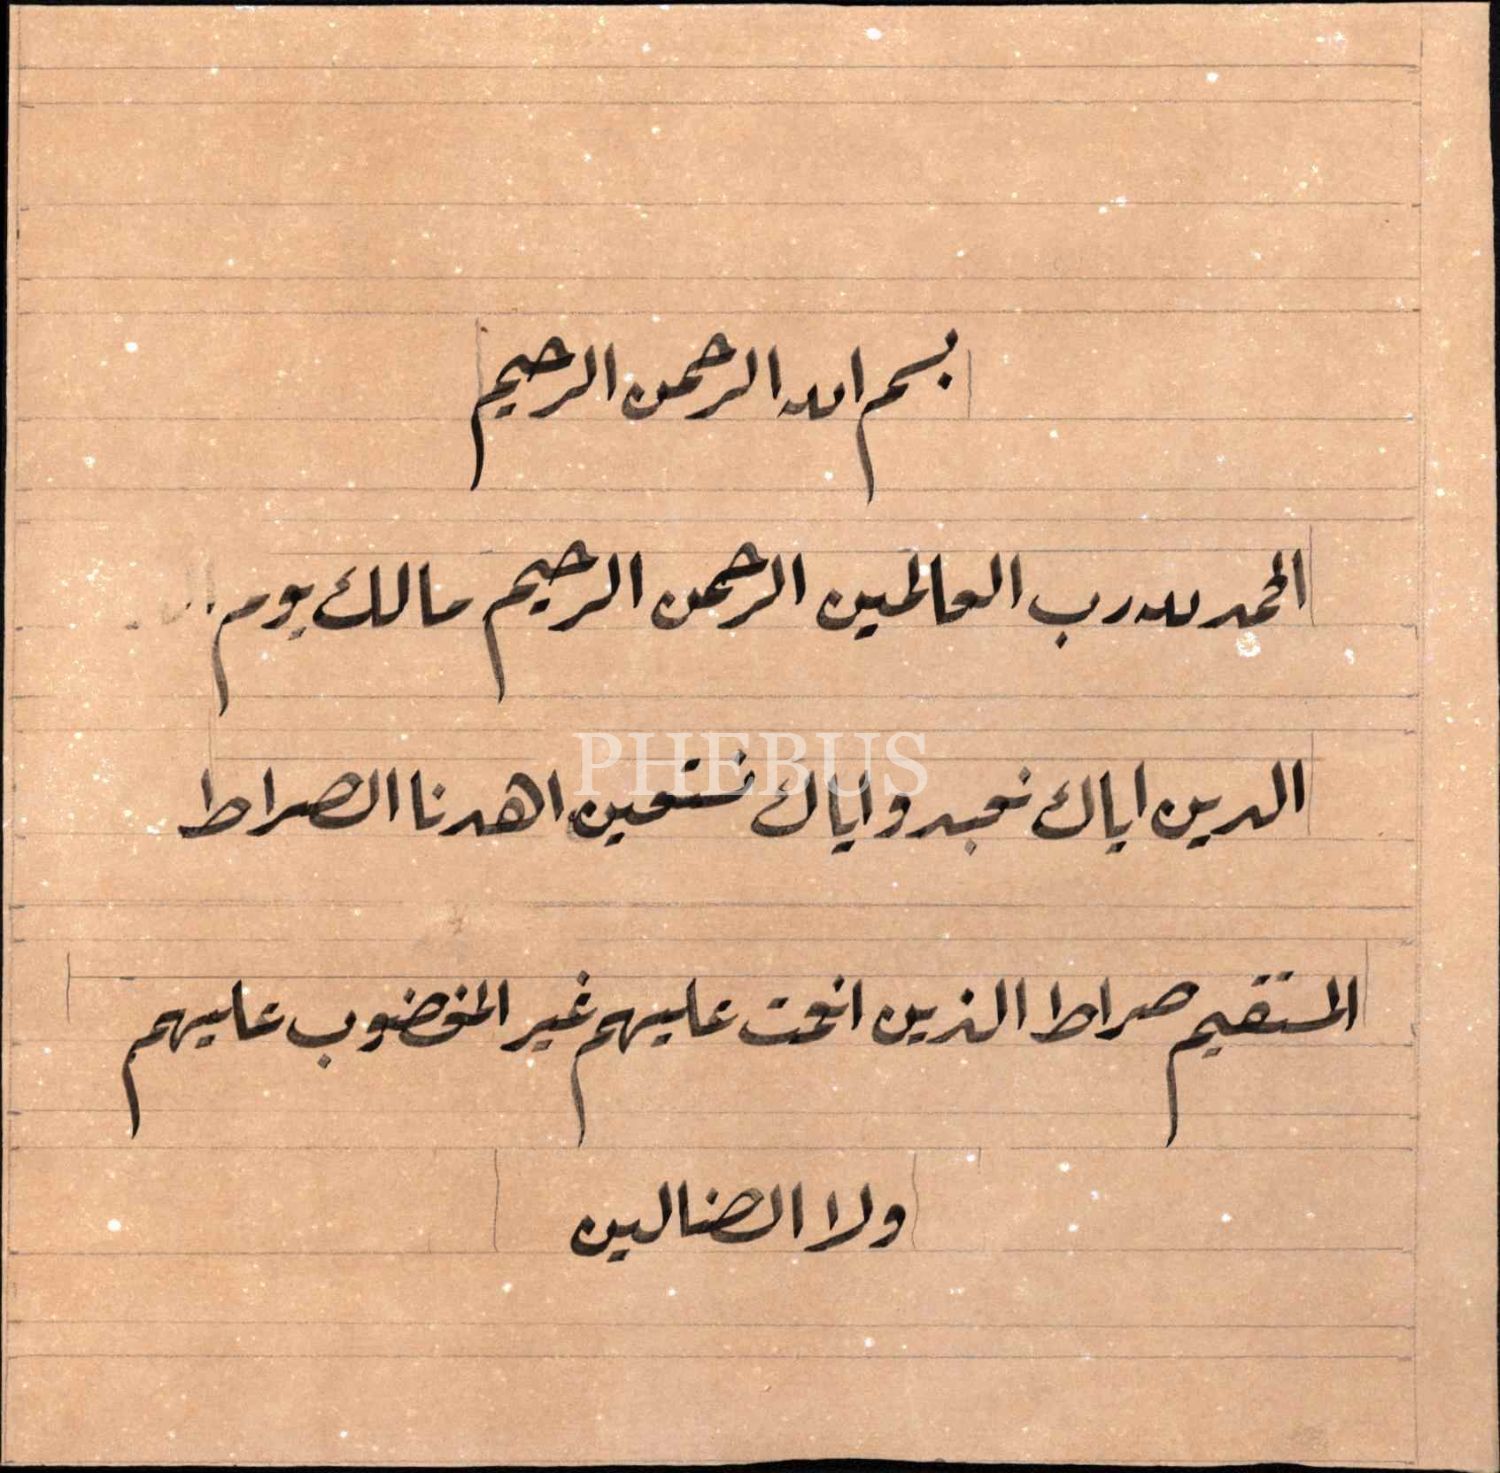 بسم الله الرحمن الرحيم
الحمد لله رب العالمين الرحمن الرحيم مالك يوم
PHEBUS
الدين اياك نعبد واياك نستعين اهدنا الصراط
المستقيم صراط الذين انعمت عليهم غير المغضوب عليهم
ولا الضالين